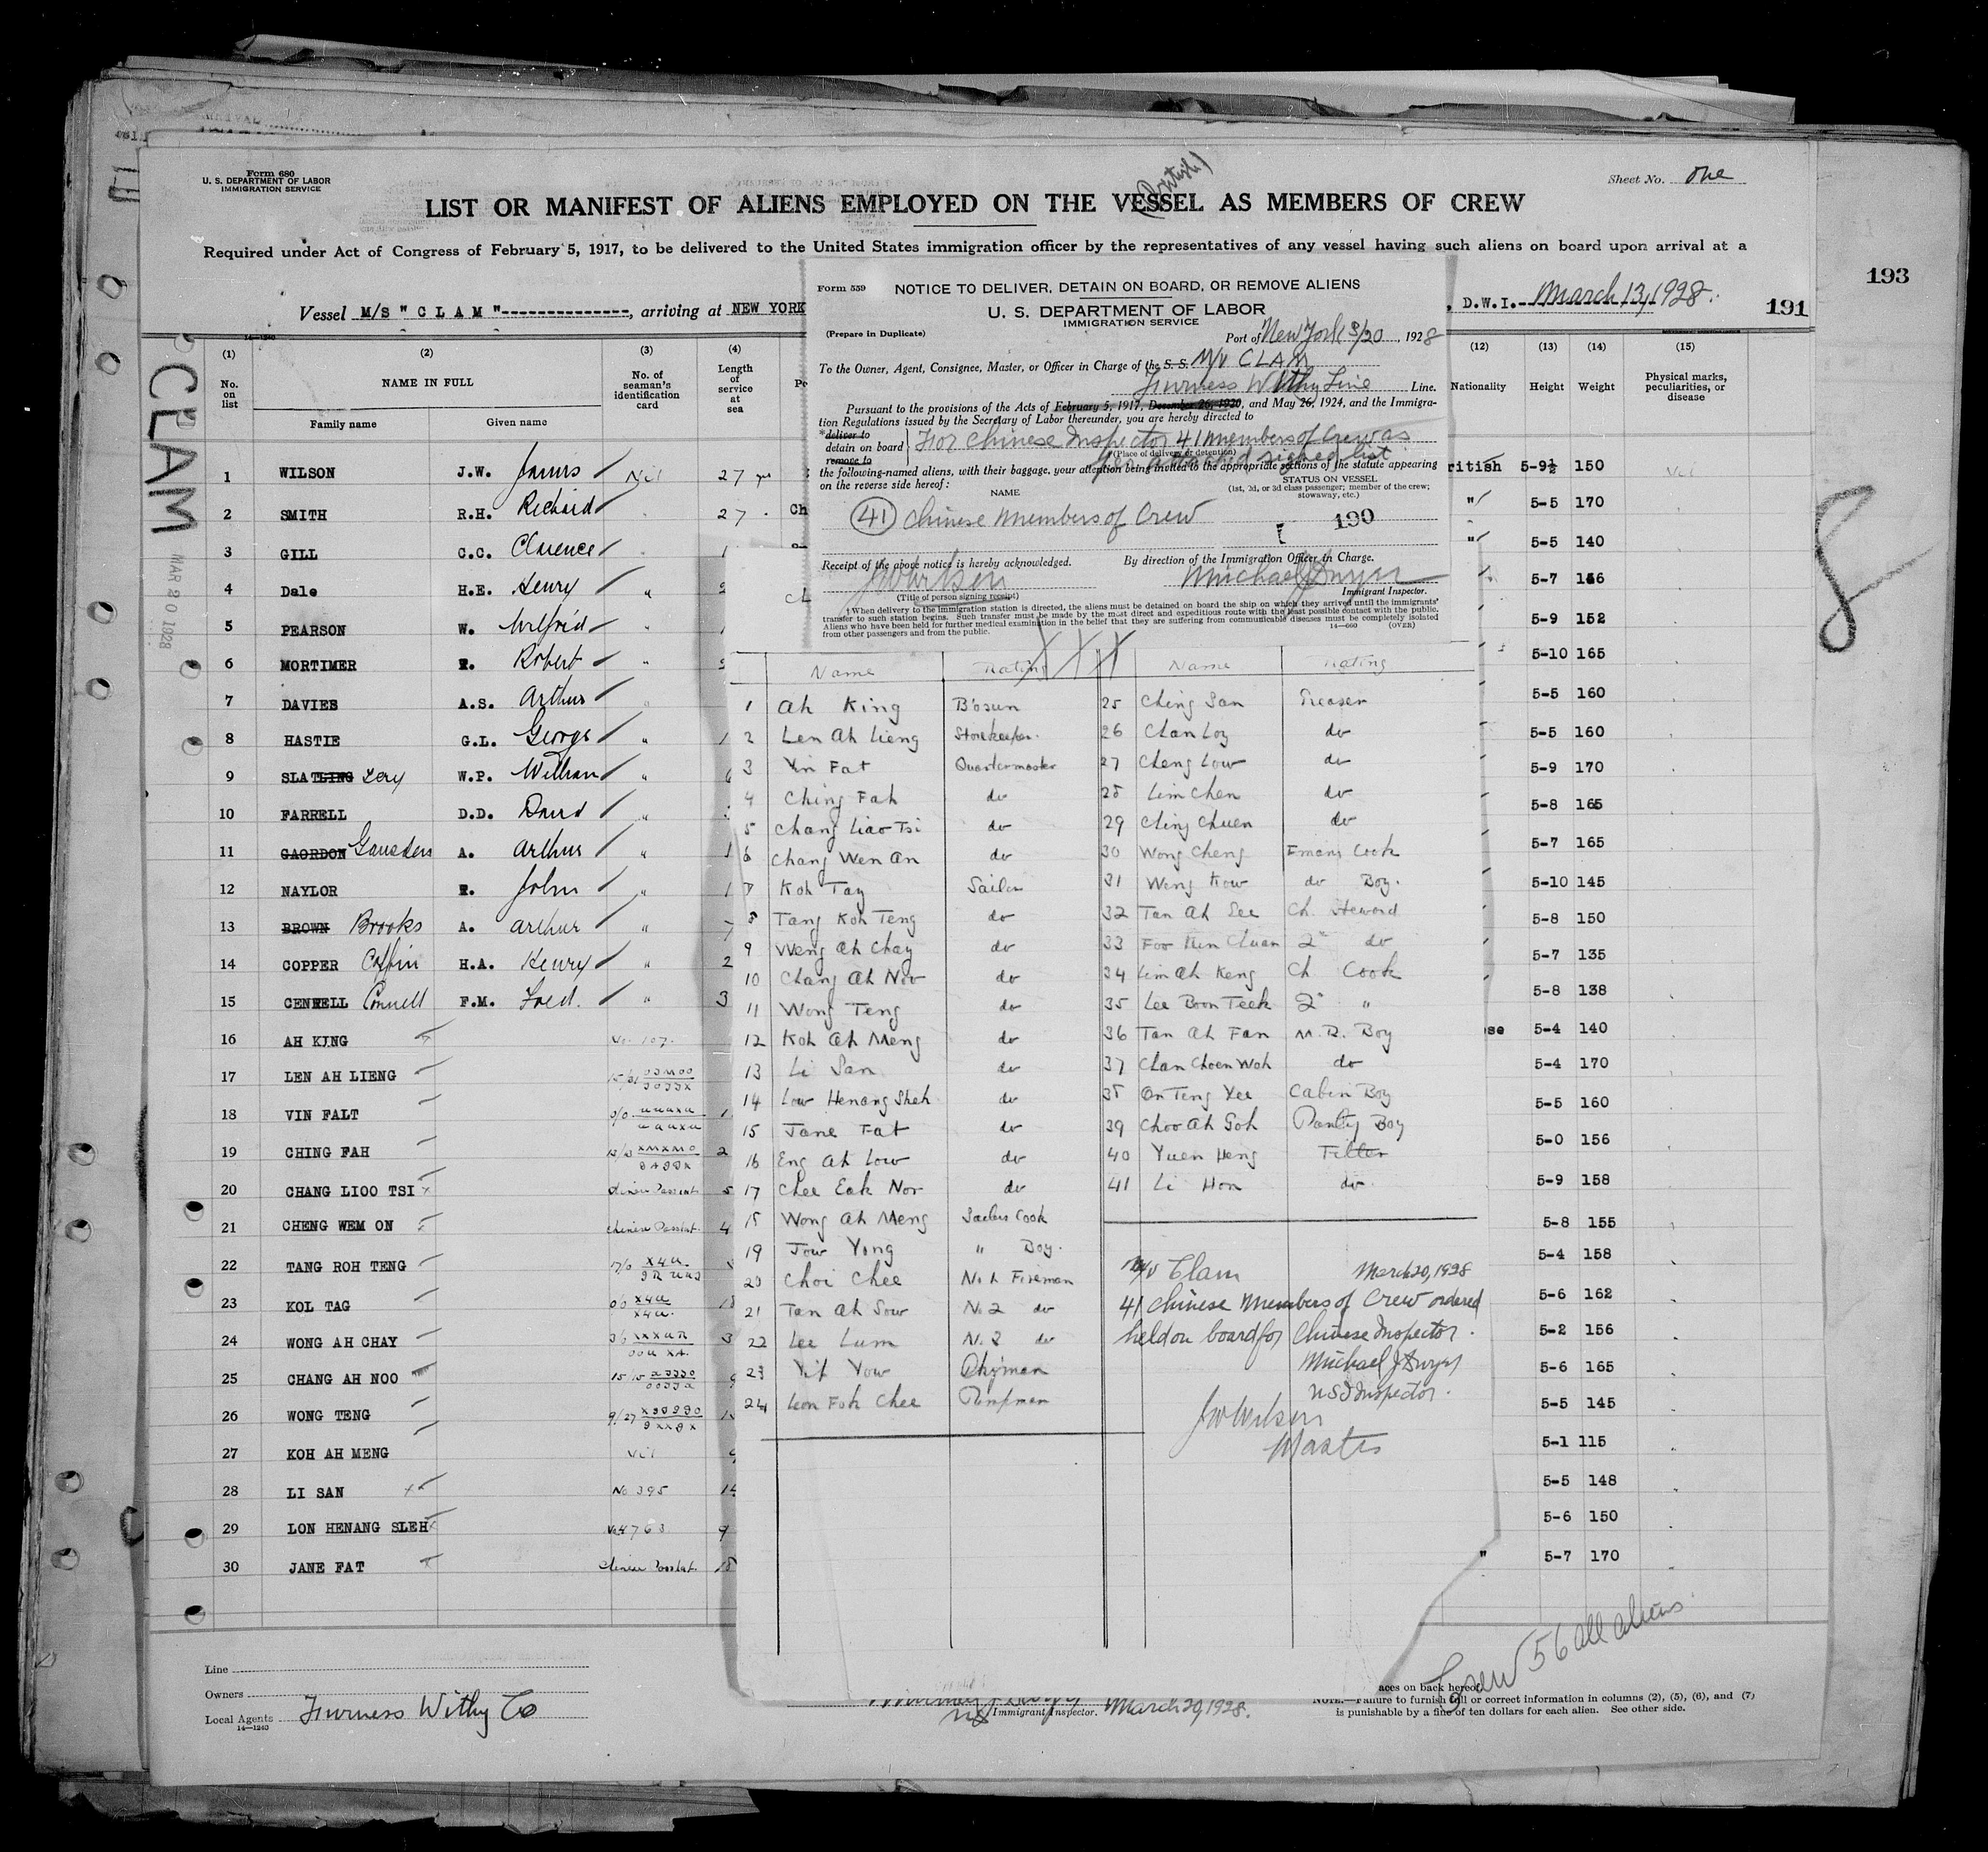 Form 680
U. S. DEPARTMENT OF LABOR
IMMIGRATION SERVICE
(British)
Sheet No. One
LIST OR MANIFEST OF ALIENS EMPLOYED ON THE VESSEL AS MEMBERS OF CREW
Required under Act of Congress of February 5, 1917, to be delivered to the United States immigration officer by the representatives of any vessel having such aliens on board upon arrival at a
193
Vessel M/S "CLAM", arriving at NEW YORK
, D.W.I. March 13, 1928.
191
CLAM
MAR 20 1928
8
14-1240
(1) (2) (3) (4)
No. on list
NAME IN FULL
Family name Given name
No. of seaman's identification card
Length of service at sea
(12) (13) (14) (15)
Nationality Height Weight Physical marks, peculiarities, or disease
1 WILSON J.W. James Nil 27 ritish 5-9½ 150
2 SMITH R.H. Richard 27 Ch " 5-5 170
3 GILL C.C. Clarence " 5-5 140
4 Dale H.E. Henry " 5-7
5 PEARSON W. Wilfrid 5-9 152
6 MORTIMER Robert " 5-10 165
7 DAVIES A.S. Arthur 5-5 160
8 HASTIE G.L. George " 5-5 160
9 SLATLING tery W.P. William " 5-9 170
10 FARRELL D.D. David " 5-8 165
11 GAORDON A. Arthur " 5-7 165
12 NAYLOR John " 5-10 145
13 BROWN Brooks A. Arthur " 5-8 150
14 COPPER Coffin H.A. Henry " 2 5-7 135
15 CENRELL Connell F.M. Fred. " 3 5-8 138
16 AH KING No. 107. se 5-4 140
17 LEN AH LIENG 5-4 170
18 VIN FALT 5-5 160
19 CHING FAH 2 5-0 156
20 CHANG LIOO TSI 5 5-9 158
21 CHENG WEM ON 4 5-8 155
22 TANG ROH TENG 5-4 158
23 KOL TAG 5-6 162
24 WONG AH CHAY 3 5-2 156
25 CHANG AH NOO 5-6 165
26 WONG TENG 5-5 145
27 KOH AH MENG Nil 5-1 115
28 LI SAN No 395 14 5-5 148
29 LON HENANG SLEH No 4763 9 5-6 150
30 JANE FAT 18 " 5-7 170
Line
Owners
Local Agents Furness Withy Co
14-1240
Immigrant Inspector. March 20, 1928.
Crew 56 all aliens
aces on back hereof.
NOTE.—Failure to furnish full or correct information in columns (2), (5), (6), and (7)
is punishable by a fine of ten dollars for each alien. See other side.
Form 559
NOTICE TO DELIVER, DETAIN ON BOARD, OR REMOVE ALIENS
U. S. DEPARTMENT OF LABOR
IMMIGRATION SERVICE
(Prepare in Duplicate)
Port of New York 3/20, 1928
To the Owner, Agent, Consignee, Master, or Officer in Charge of the S. S. M/V CLAM
Furness Withy Line Line.
Pursuant to the provisions of the Acts of February 5, 1917, December 26, 1920, and May 26, 1924, and the Immigra-
tion Regulations issued by the Secretary of Labor thereunder, you are hereby directed to
*deliver to
detain on board For Chinese Inspector 41 members of crew as
remove to
(Place of delivery or detention)
per attached signed list
the following-named aliens, with their baggage, your attention being invited to the appropriate sections of the statute appearing
on the reverse side hereof:
NAME
STATUS ON VESSEL
(1st, 2d, or 3d class passenger; member of the crew;
stowaway, etc.)
41 Chinese Members of Crew
190
Receipt of the above notice is hereby acknowledged.
By direction of the Immigration Officer in Charge.
JW Wilson
Michael J Dwyer
(Title of person signing receipt)
Immigrant Inspector.
† When delivery to the immigration station is directed, the aliens must be detained on board the ship on which they arrived until the immigrants'
transfer to such station begins. Such transfer must be made by the most direct and expeditious route with the least possible contact with the public.
Aliens who have been held for further medical examination in the belief that they are suffering from communicable diseases must be completely isolated
from other passengers and from the public.
14-660 (OVER)
XXX
Name Rating Name Rating
1 Ah King B'osun
2 Len Ah Lieng Storekeeper
3 Yin Fat Quartermaster
4 Ching Fah do
5 Chang Liao Tsi do
6 Chang Wen An do
7 Koh Tay Sailor
8 Tang Koh Teng do
9 Weng Ah Chay do
10 Chang Ah Noo do
11 Wong Teng do
12 Koh Ah Meng do
13 Li San do
14 Low Henang Sheh do
15 Jane Fat do
16 Eng Ah Low do
17 Chee Eak Nor do
18 Wong Ah Meng Sailors Cook
19 Jow Yong " Boy.
20 Choi Chee No 1 Fireman
21 Tan Ah Sow No 2 do
22 Lee Lum No 3 do
23 Yit Yow
24 Leon Fok Chee Pumpman
25 Ching San Greaser
26 Chan Loy do
27 Cheng Low do
28 Lim Chen do
29 Ching Chuen do
30 Wong Cheng Fmans Cook
31 Weng Kow do Boy.
32 Tan Ah See Ch. Steward
33 Foo Hen Chuan 2" do
34 Lim Ah Keng Ch Cook
35 Lee Boon Teek 2" "
36 Tan Ah Fan M.R. Boy
37 Chan Choen Woh do
38 On Teng Yee Cabin Boy
39 Choo Ah Soh Pantry Boy
40 Yuen Heng Fitter
41 Li Hon do
M/V Clam March 20, 1928
41 Chinese Members of Crew ordered
held on board for Chinese Inspector.
Michael J Dwyer
US Inspector.
JW Wilson
Master